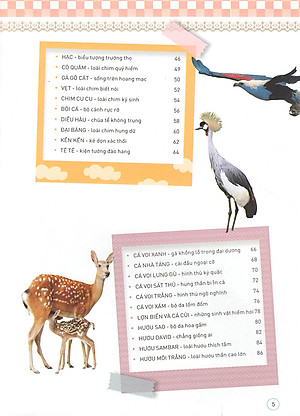 HẠC - biểu tượng trường thọ 46
CÒ QUĂM - loài chim quý hiếm 49
GÀ GÔ CÁT - sống trên hoang mạc 50
VẸT - loài chim biết nói 52
CHIM CU CU - loài chim ký sinh 54
BÓI CÁ - bộ cánh rực rỡ 56
DIỀU HÂU - chúa tể không trung 58
ĐẠI BÀNG - loài chim hung dữ 60
KỀN KỀN - kẻ dọn xác thối 62
TÊ TÊ - kiện tướng đào hang 64
CÁ VOI XANH - gã khổng lồ trong đại dương 66
CÁ NHÀ TÁNG - cái đầu ngoại cỡ 68
CÁ VOI LƯNG GÙ - hình thù kỳ quặc 70
CÁ VOI SÁT THỦ - hung thần biển cả 72
CÁ VOI TRẮNG - hình thù ngộ nghĩnh 74
CÁ VOI XÁM - bộ da lốm đốm 76
LỢN BIỂN VÀ CÁ CÚI - những sinh vật hiếm hoi 78
HƯƠU SAO - bộ da hoa gấm 80
HƯƠU DAVID - chẳng giống ai 82
HƯƠU SAMBAR - loài hươu thích tắm 84
HƯƠU MÔI TRẮNG - loài hươu thân cao lớn 86
5